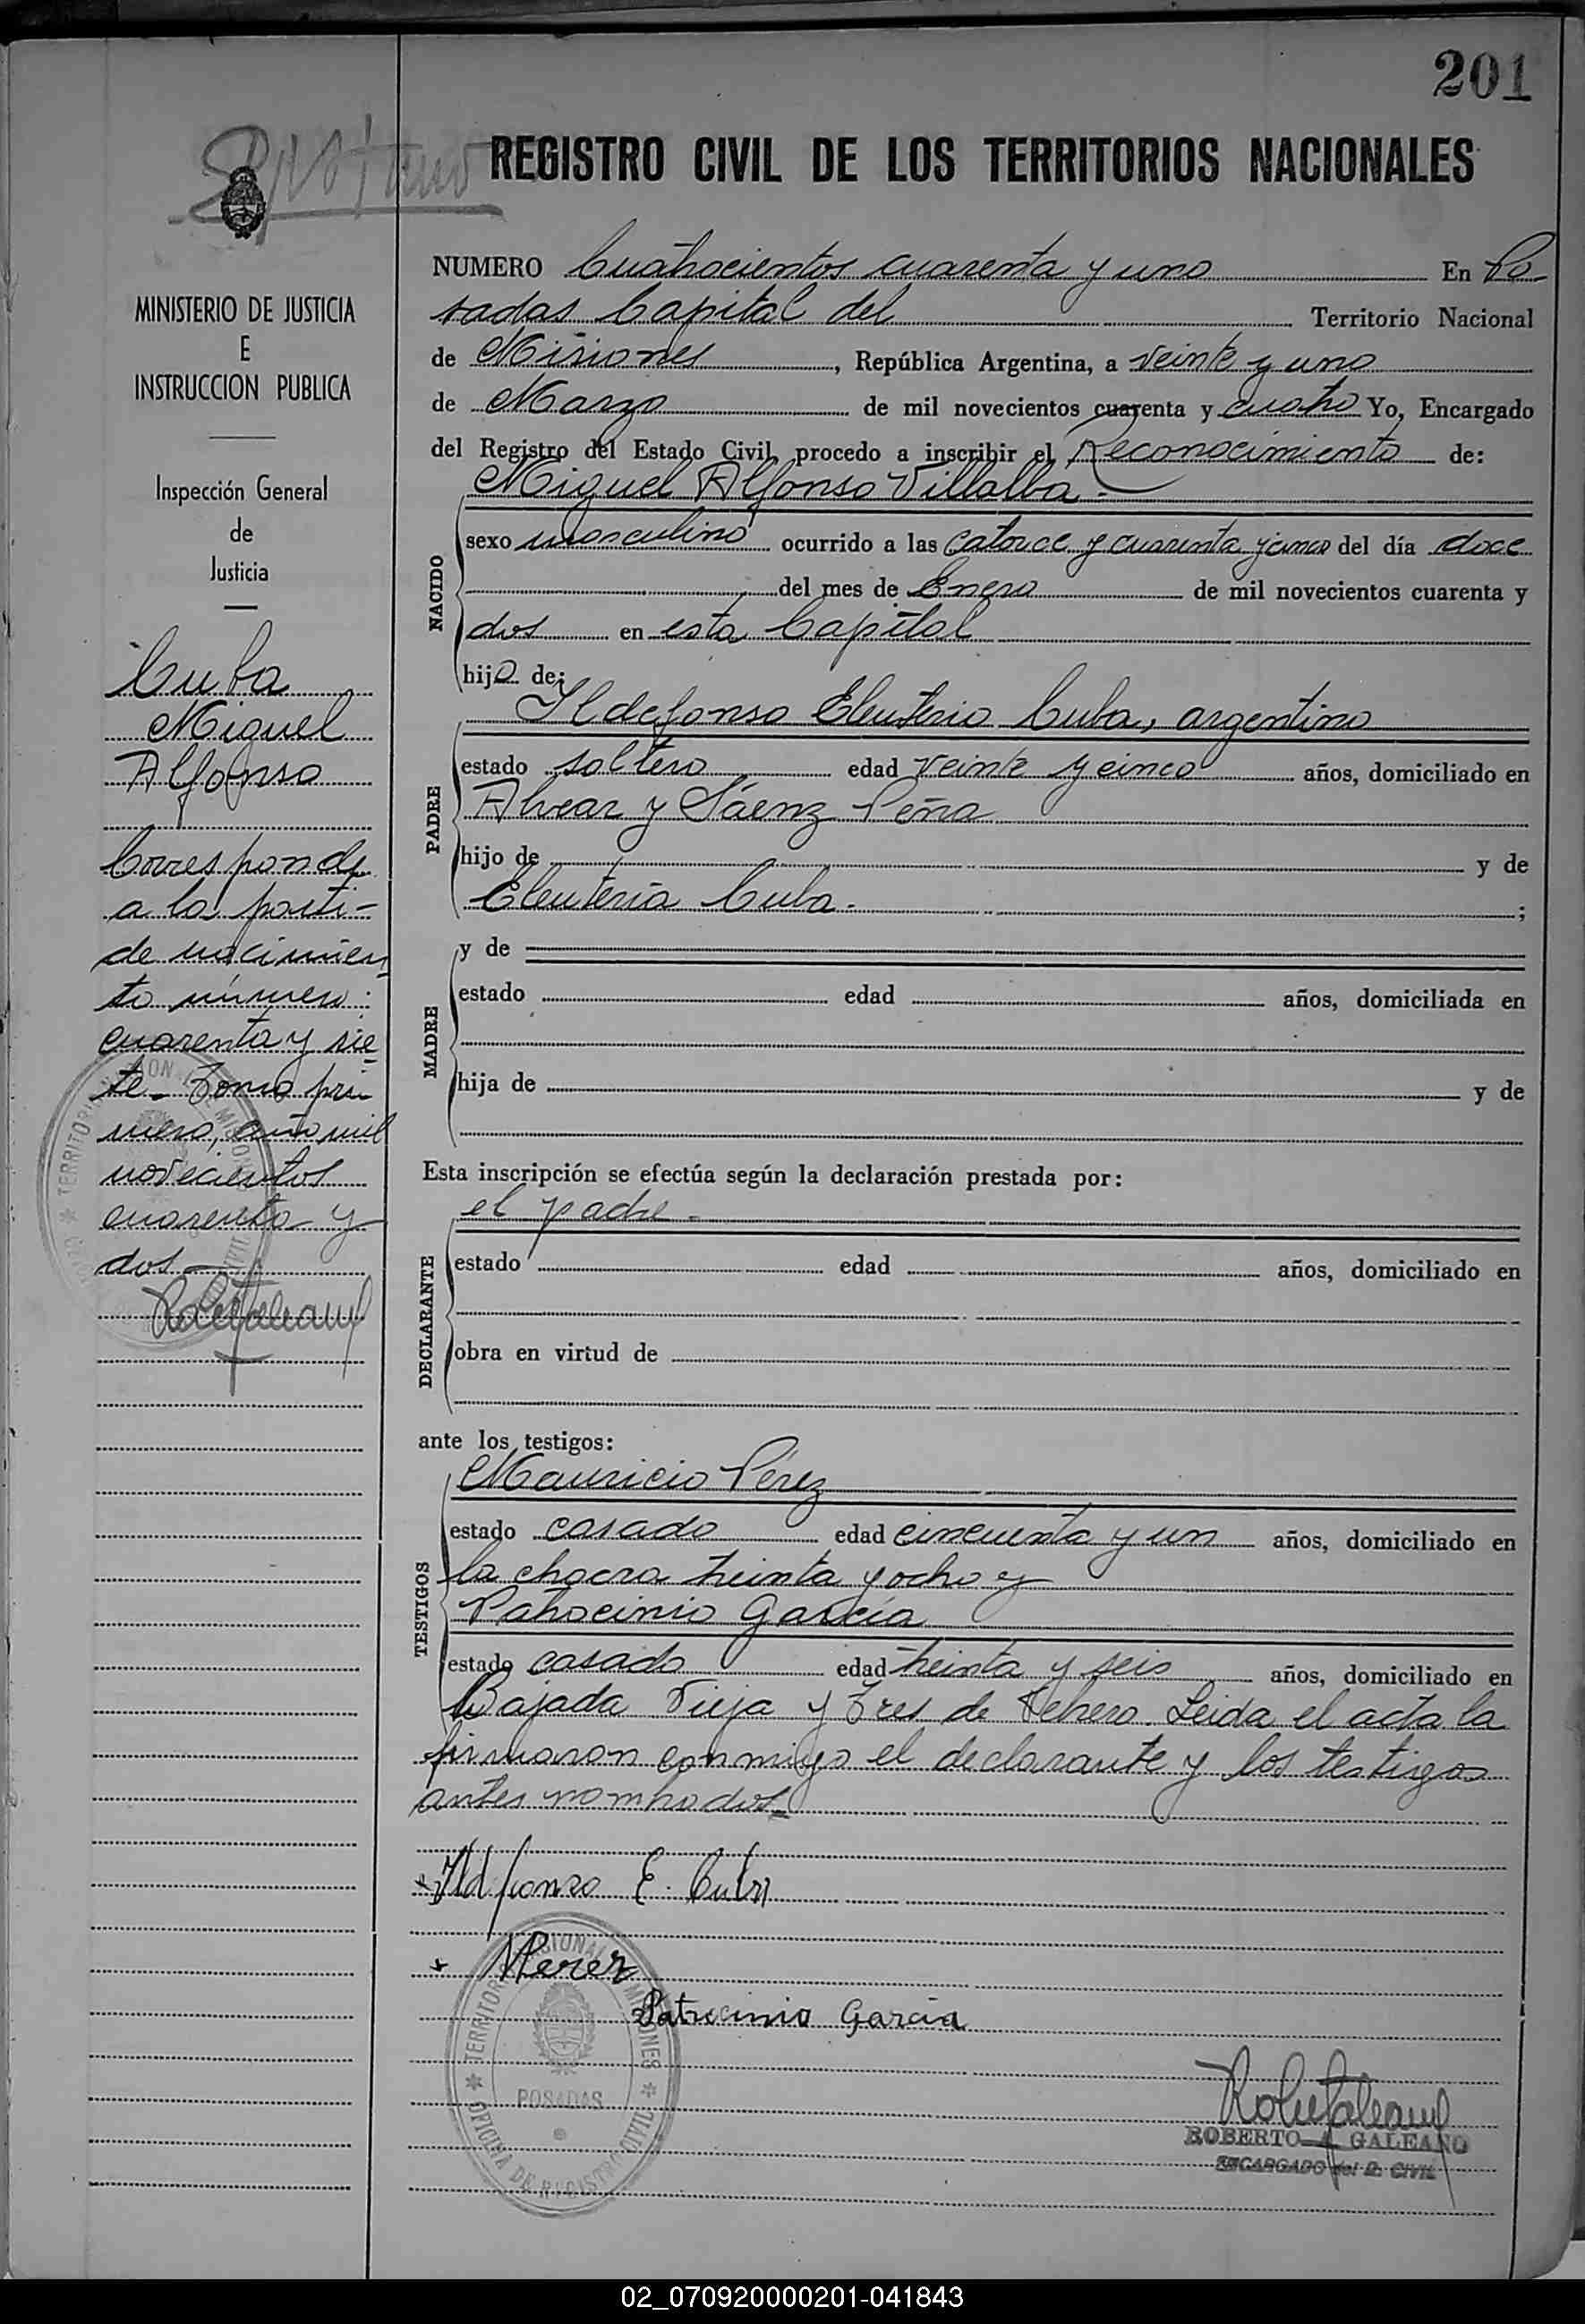 201
REGISTRO CIVIL DE LOS TERRITORIOS NACIONALES
MINISTERIO DE JUSTICIA
E
INSTRUCCION PUBLICA
Inspección General
de
Justicia
Cuba
Miguel
Alfonso
Corresponde
a la parti-
de nacimien
to número:
cuarenta y sie
te. Tomo pri
mero, año mil
novecientos
cuarenta y
dos
NUMERO Cuatrocientos cuarenta y uno En Po
sadas Capital del Territorio Nacional
de Misiones, República Argentina, a veinte y uno
de Marzo de mil novecientos cuarenta y cuatro Yo, Encargado
del Registro del Estado Civil, procedo a inscribir el Reconocimiento de:
Miguel Alfonso Villalba.-
NACIDO
sexo masculino ocurrido a las catorce y cuarenta y cinco del día doce
del mes de Enero de mil novecientos cuarenta y
dos en esta Capital
hijo de:
PADRE
Ildefonso Eleuterio Cuba, argentino
estado soltero edad veinte y cinco años, domiciliado en
Alvear y Sáenz Peña
hijo de y de
Eleuteria Cuba.- ;
MADRE
y de
estado edad años, domiciliada en
hija de y de
Esta inscripción se efectúa según la declaración prestada por:
el padre.-
DECLARANTE
estado edad años, domiciliado en
obra en virtud de
ante los testigos:
TESTIGOS
Mauricio Pérez
estado casado edad cincuenta y un años, domiciliado en
la chacra treinta y ocho y
Patrocinio García
estado casado edad treinta y seis años, domiciliado en
Bajada Vieja y Tres de Febrero. Leida el acta la
firmaron conmigo el declarante y los testigos
antes nombrados.
Ildfonso E. Cuba
MPerez
Patrocinio Garcia
TERRITORIO NACIONAL DE MISIONES
POSADAS
OFICINA DE REGISTRO CIVIL
ROBERTO A. GALEANO
ENCARGADO del R. CIVIL
02_070920000201-041843